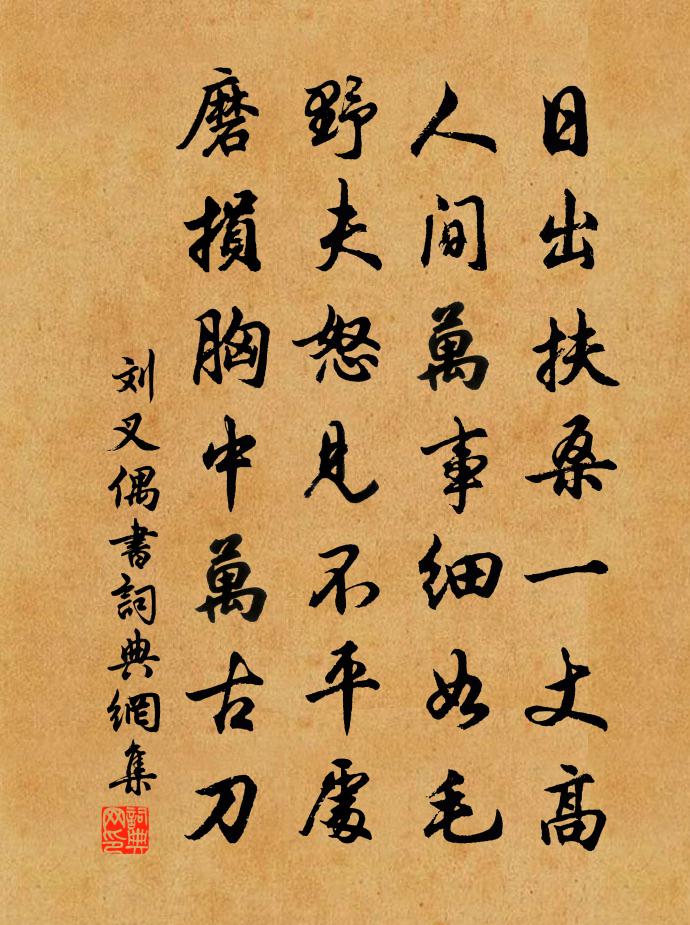 日出扶桑一丈高
人間萬事細如毛
野夫怒見不平處
磨損胸中萬古刀
刘叉偶書詞典網集
詞典网印